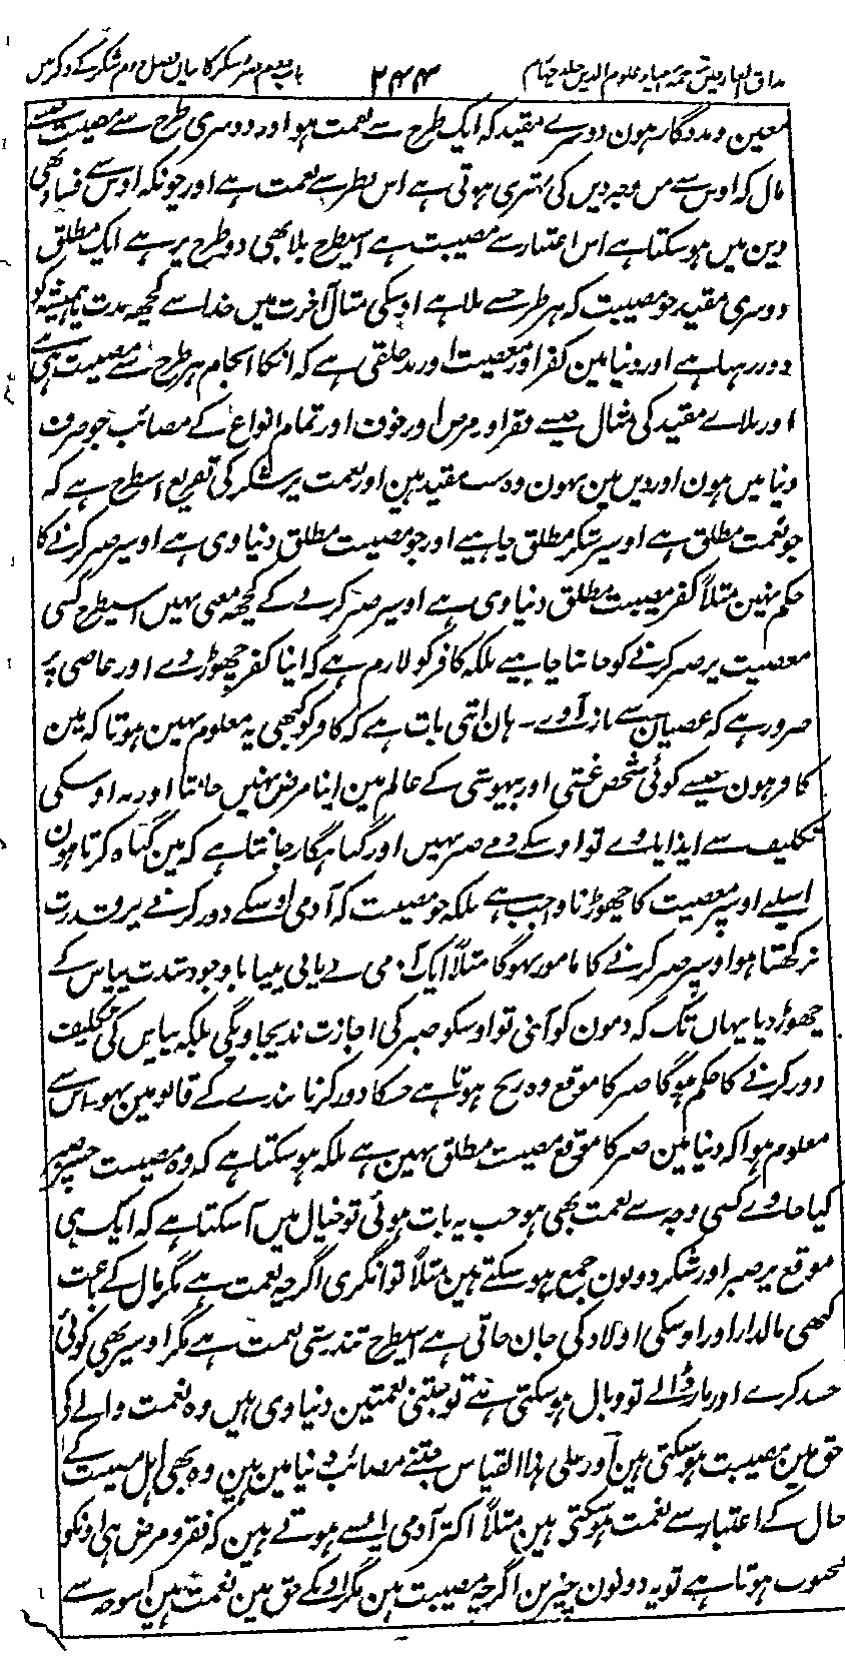 مذاق العارفین ترجمہ احیاء علوم الدین جلد چہارم ۲۴۴ باب دوم صبر و شکر کا بیان فصل دوم شکر کے ذکر میں
معین و مددگار ہون دوسرے مقید کہ ایک طرح سے نعمت ہو اور دوسری طرح سے مصیبت جیسے
مال کہ اوس سے من وجہ دین کی بہتری ہوتی ہے اس نظر سے نعمت ہے اور چونکہ اوس سے فساد بھی
دین میں ہو سکتا ہے اس اعتبار سے مصیبت ہے اسیطرح بلا بھی دو طرح پر ہے ایک مطلق
دوسری مقید جو مصیبت کہ ہر طرح سے بلا ہے اوسکی مثال آخرت میں خدا سے کچھ مدت یا ہمیشہ کو
دور رہنا ہے اور دنیا مین کفر اور معصیت اور بد خلقی ہے کہ انکا انجام ہر طرح سے مصیبت ہی ہے
اور بلاے مقید کی مثال جیسے فقر اور مرض اور خوف اور تمام انواع کے مصائب جو صرف
دنیا میں ہون اور دین مین نہون وہ سب مقید ہین اور نعمت پر شکر کی تفریع اسطرح ہے کہ
جو نعمت مطلق ہے اوسپر شکر مطلق چاہیے اور جو مصیبت مطلق دنیاوی ہے اوسپر صبر کرنے کا
حکم نہین مثلاً کفر مصیبت مطلق دنیاوی ہے اوسپر صبر کرنے کے کچھ معنی نہیں اسیطرح کسی
معصیت پر صبر کرنے کو جاننا چاہیے بلکہ کافر کو لازم ہے کہ اپنا کفر چھوڑ دے اور عاصی پر
ضرور ہے کہ عصیان سے باز آوے۔ ہان اتنی بات ہے کہ کافر کو کبھی یہ معلوم نہین ہوتا کہ مین
کافر ہون جیسے کوئی شخص غشی اور بیہوشی کے عالم مین اپنا مرض نہیں جانتا اور نہ اوسکی
تکلیف سے ایذا پاوے تو اوسکے ذمے صبر نہیں اور گناہگار جانتا ہے کہ مین گناہ کرتا ہون
اسلیے اوسپر معصیت کا چھوڑنا واجب ہے بلکہ جو مصیبت کہ آدمی اوسکے دور کرنے پر قدرت
رکھتا ہو اوسپر صبر کرنے کا مامور نہوگا مثلاً ایک آدمی نے پانی پینا باوجود شدت پیاس کے
چھوڑ دیا یہاں تک کہ دمون کو آ بنی تو اوسکو صبر کی اجازت ندیجاویگی بلکہ پیاس کی تکلیف
دور کرنے کا حکم ہوگا صبر کا موقع وہ رنج ہوتا ہے جسکا دور کرنا بندے کے قابو مین نہو اس سے
معلوم ہوا کہ دنیا مین صبر کا موقع مصیبت مطلق نہین ہے بلکہ ہو سکتا ہے کہ وہ مصیبت جسپر صبر
کیا جاوے کسی وجہ سے نعمت بھی ہو جب یہ بات ہوئی تو خیال میں آ سکتا ہے کہ ایک ہی
موقع پر صبر اور شکر دونون جمع ہو سکتے ہین مثلاً توانگری اگرچہ نعمت ہے مگر مال کے باعث
کبھی مالدار اور اوسکی اولاد کی جان جاتی ہے اسیطرح تندرستی نعمت ہے مگر اوسپر بھی کوئی
حسد کرے اور مار ڈالے تو وبال ہو سکتی ہے تو جتنی نعمتین دنیاوی ہیں وہ نعمت والے کی
حق مین مصیبت ہو سکتی ہین اور علی ہذا القیاس جتنے مصائب دنیا مین ہین وہ بھی اہل مصیبت کے
حال کے اعتبار سے نعمت ہو سکتی ہین مثلاً اکثر آدمی ایسے ہوتے ہین کہ فقر و مرض ہی اونکو
محبوب ہوتا ہے تو یہ دونون چیزین اگرچہ مصیبت ہین مگر اونکے حق مین نعمت ہین اسوجہ سے